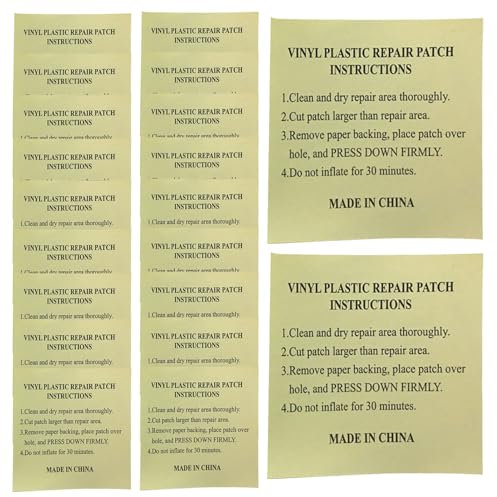 VINYL PLASTIC REPAIR PATCH
INSTRUCTIONS
VINYL PLASTIC REPAIR PATCH
INSTRUCTIONS
1.Clean and dry repair area thoroughly.
VINYL PLASTIC REPAIR PATCH
INSTRUCTIONS
1.Clean and dry repair area thoroughly.
VINYL PLASTIC REPAIR PATCH
INSTRUCTIONS
VINYL PLASTIC REPAIR PATCH
INSTRUCTIONS
1.Clean and dry repair area thoroughly.
VINYL PLASTIC REPAIR PATCH
INSTRUCTIONS
1.Clean and dry repair area thoroughly.
VINYL PLASTIC REPAIR PATCH
INSTRUCTIONS
1.Clean and dry repair area thoroughly.
VINYL PLASTIC REPAIR PATCH
INSTRUCTIONS
1.Clean and dry repair area thoroughly.
VINYL PLASTIC REPAIR PATCH
INSTRUCTIONS
1.Clean and dry repair area thoroughly.
2.Cut patch larger than repair area.
3.Remove paper backing, place patch over
hole, and PRESS DOWN FIRMLY.
4.Do not inflate for 30 minutes.
MADE IN CHINA
VINYL PLASTIC REPAIR PATCH
INSTRUCTIONS
VINYL PLASTIC REPAIR PATCH
INSTRUCTIONS
1.Clean and dry repair area thoroughly.
VINYL PLASTIC REPAIR PATCH
INSTRUCTIONS
1.Clean and dry repair area thoroughly.
VINYL PLASTIC REPAIR PATCH
INSTRUCTIONS
VINYL PLASTIC REPAIR PATCH
INSTRUCTIONS
1.Clean and dry repair area thoroughly.
VINYL PLASTIC REPAIR PATCH
INSTRUCTIONS
1.Clean and dry repair area thoroughly.
VINYL PLASTIC REPAIR PATCH
INSTRUCTIONS
1.Clean and dry repair area thoroughly.
VINYL PLASTIC REPAIR PATCH
INSTRUCTIONS
1.Clean and dry repair area thoroughly.
VINYL PLASTIC REPAIR PATCH
INSTRUCTIONS
1.Clean and dry repair area thoroughly.
2.Cut patch larger than repair area.
3.Remove paper backing, place patch over
hole, and PRESS DOWN FIRMLY.
4.Do not inflate for 30 minutes.
MADE IN CHINA
VINYL PLASTIC REPAIR PATCH
INSTRUCTIONS
1.Clean and dry repair area thoroughly.
2.Cut patch larger than repair area.
3.Remove paper backing, place patch over
hole, and PRESS DOWN FIRMLY.
4.Do not inflate for 30 minutes.
MADE IN CHINA
VINYL PLASTIC REPAIR PATCH
INSTRUCTIONS
1.Clean and dry repair area thoroughly.
2.Cut patch larger than repair area.
3.Remove paper backing, place patch over
hole, and PRESS DOWN FIRMLY.
4.Do not inflate for 30 minutes.
MADE IN CHINA